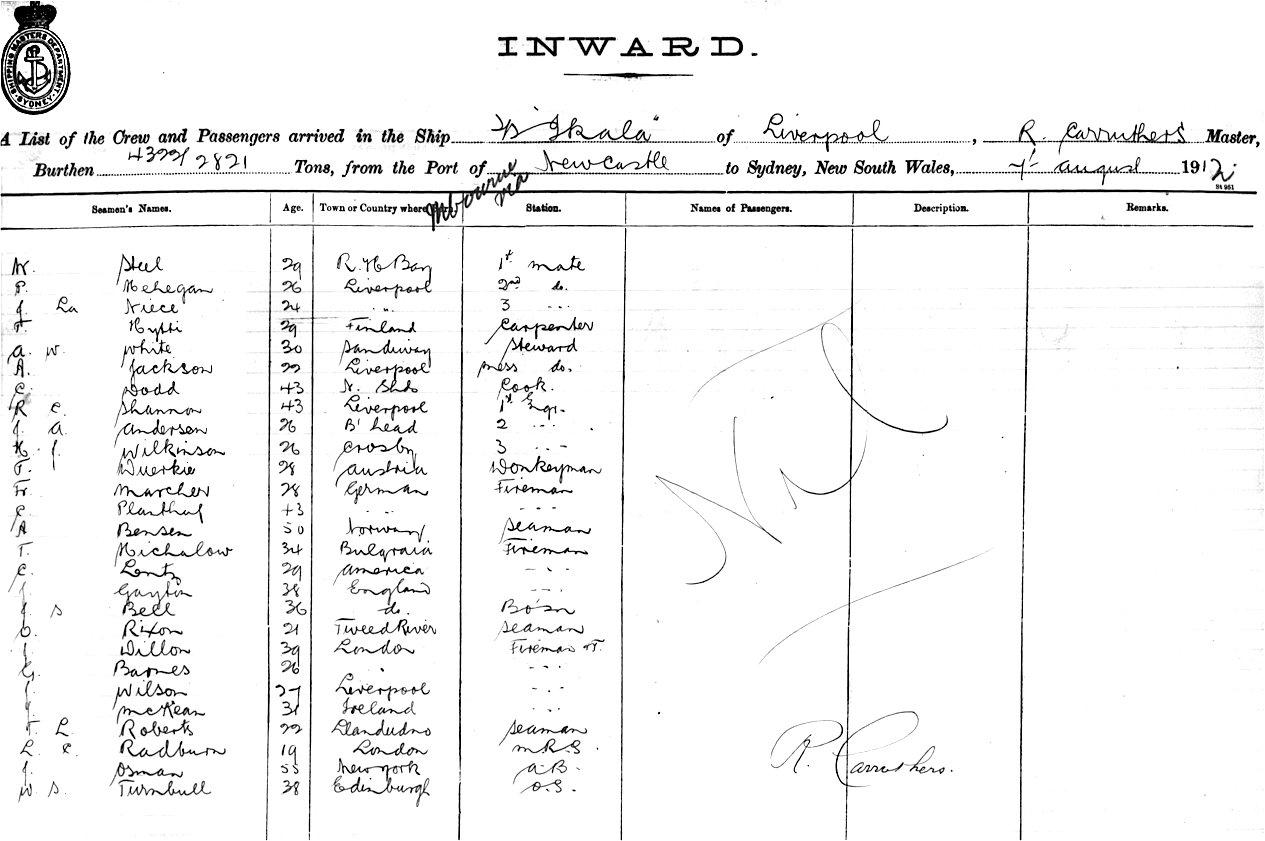 SHIPPING MASTERS DEPARTMENT SYDNEY
INWARD.
A List of the Crew and Passengers arrived in the Ship "Ikala" of Liverpool, R. Carruthers Master,
Burthen 4322/2821 Tons, from the Port of Newcastle to Sydney, New South Wales, 7th august 1912
via
St 951
Seamen's Names. Age. Town or Country where Station. Names of Passengers. Description. Remarks.
W. Steel 29 R. H Bay 1st mate
P. Hehegan 26 Liverpool 2nd do.
J. La Niece 24 " 3 - - -
F. Hytti 29 Finland Carpenter
A. W. White 30 Sandiway Steward
A. Jackson 22 Liverpool mess do.
C. Dodd 43 N. Shds Cook.
R C. Shannon 43 Liverpool 1st Engr.
J. A. Andersen 26 B'head 2 - - -
H. J. Wilkinson 26 Crosby 3 - - -
T. 28 Austria Donkeyman
Fr. Marcher 28 German Fireman
C. 43 - - - - -
A Bensen 50 Norway Seaman
T. Michalow 34 Bulgraia Fireman
C. Lentz 29 America - - -
J. Gayton 38 England - - -
J. S Bell 36 do. Bo'sn
O. Rixon 21 Tweed River Seaman
J. Dillon 39 London Fireman & T.
G. Barnes 26 " - - -
J. Wilson 27 Liverpool - - -
J. McKean 31 Ireland - - -
T. L. Roberts 22 Llandudno Seaman
L. C. Radburn 19 London M.R.S.
J. Osman 55 New York A.B.
W S. Turnbull 38 Edinburgh O.S.
Nil
R. Carruthers.